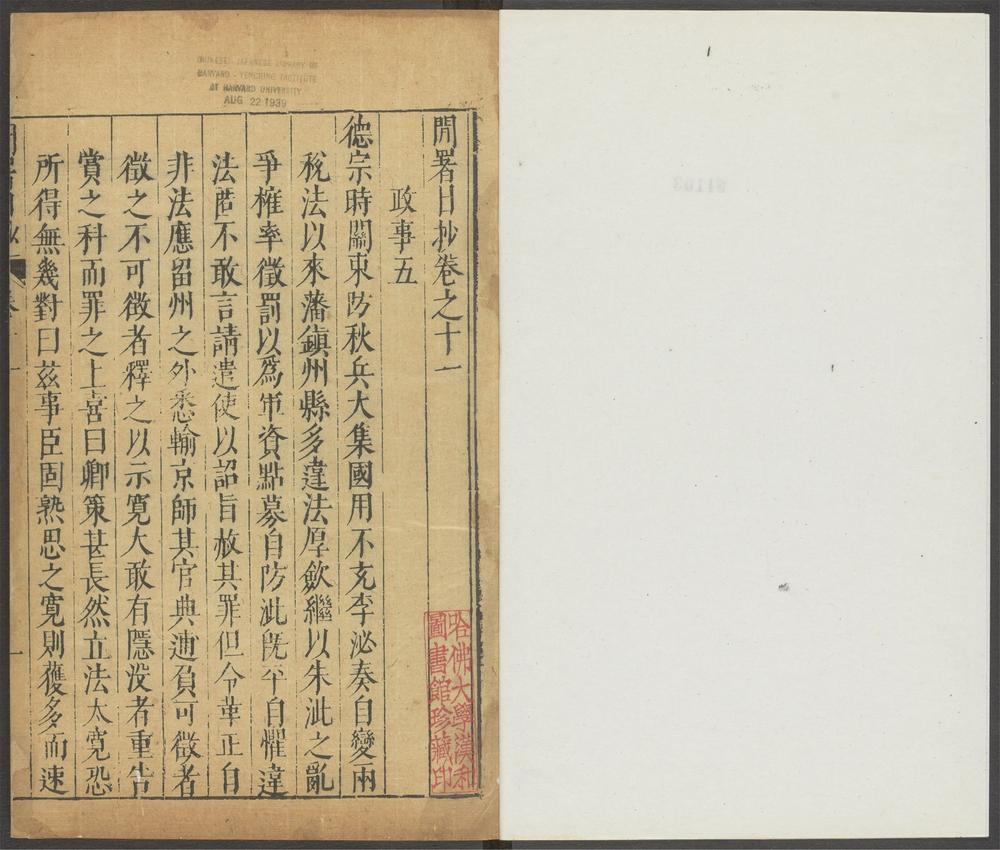 閒署日抄卷之十一
政事五
德宗時關東防秋兵大集國用不充李泌奏自變兩
稅法以來藩鎮州縣多違法厚斂繼以朱泚之亂
爭榷率徵罰以爲軍資點募自防泚旣平自懼違
法匿不敢言請遣使以詔旨赦其罪但令革正自
非法應留州之外悉輸京師其官典逋負可徵者
徵之不可徵者釋之以示寬大敢有隱没者重告
賞之科而罪之上喜曰卿策甚長然立法太寬恐
所得無幾對曰茲事臣固熟思之寬則獲多而速
哈佛大學漢和
圖書館珍藏印
CHINESE-JAPANESE LIBRARY OF
HARVARD-YENCHING INSTITUTE
AT HARVARD UNIVERSITY
AUG 22 1939